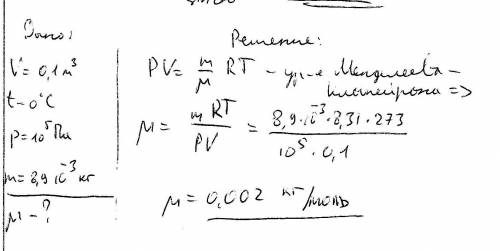 Дано:
V = 0,1 м³
t - 0°C
P = 10⁵ Па
m = 8,9·10⁻³ кг
μ - ?
Решение:
PV = m/μ RT - ур-е Менделеева-
Клапейрона =>
μ = mRT/PV = 8,9·10⁻³·8,31·273/10⁵·0,1
μ = 0,002 кг/моль